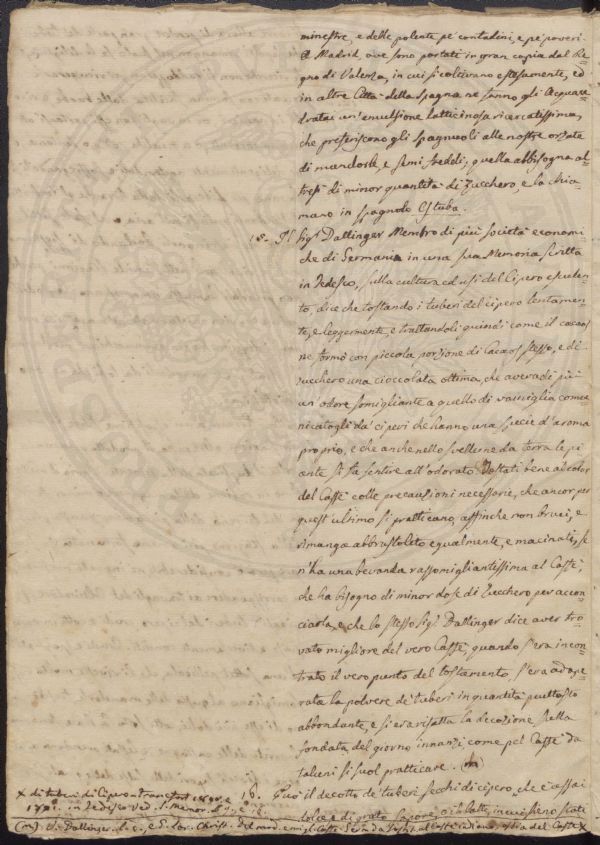 minestre, e delle polente pe' contadini, e pe' poveri
A Madrid, ove sono portati in gran copia dal Re=
gno di Valenza, in cui si coltivano estesamente, ed
in altre Città della Spagna ne fanno gli Acquace=
dratai un'emulsione latticinosa ricercatissima,
che preferiscono gli spagnuoli alle nostre orzate
di mandorle, e semi freddi; quella abbisogna al=
tresì di minor quantità di Zucchero, e la chia=
mano in spagnolo
15. Il Sigr Dallinger Membro di più società economi=
che di Germania in una sua Memoria scritta
in Tedesco, sulla cultura ed usi del Cipero esculen=
to, dice che tostando i tuberi del cipero lentamen=
te, e leggermente, e trattandoli quindi come il cacaos
ne formò con piccola porzione di Cacaos stesso, e di
zucchero una cioccolata ottima, che aveva di più
un'odore somigliante a quello di vainiglia comu=
nicatogli da' ciperi che hanno una specie d'aroma
proprio, e che anche nello svellerne da terra le pi=
ante si fa sentire all'odorato. Tostati bene al color
del Caffè colle precauzioni necessarie, che ancor per
quest'ultimo si pratticano, affinchè non bruci, e
rimanga abbrustoleto egualmente, e macinati, se
n'ha una bevanda rassomigliantissima al Caffè,
che ha bisogno di minor dose di Zucchero per accon=
ciarla, e che lo stesso Sigr Dallinger dice aver tro=
vato migliore del vero Caffè, quando s'era incon=
trato il vero punto del tostamento, s'era adope=
rata la polvere de' tuberi in quantità piuttosto
abbondante, e si era rifatta la decozione sulla
fondata del giorno innanzi come pel Caffè da
taluni si suol pratticare. (m)
16. Qui il decotto de' tuberi secchi di cipero, che è assai
dolce, e di grato sapore, o il latte, in cui sieno stati
x di tuberi di Cipero
in Tedesco Ved. S. Memor.
(m) V. Dallinger l. c.